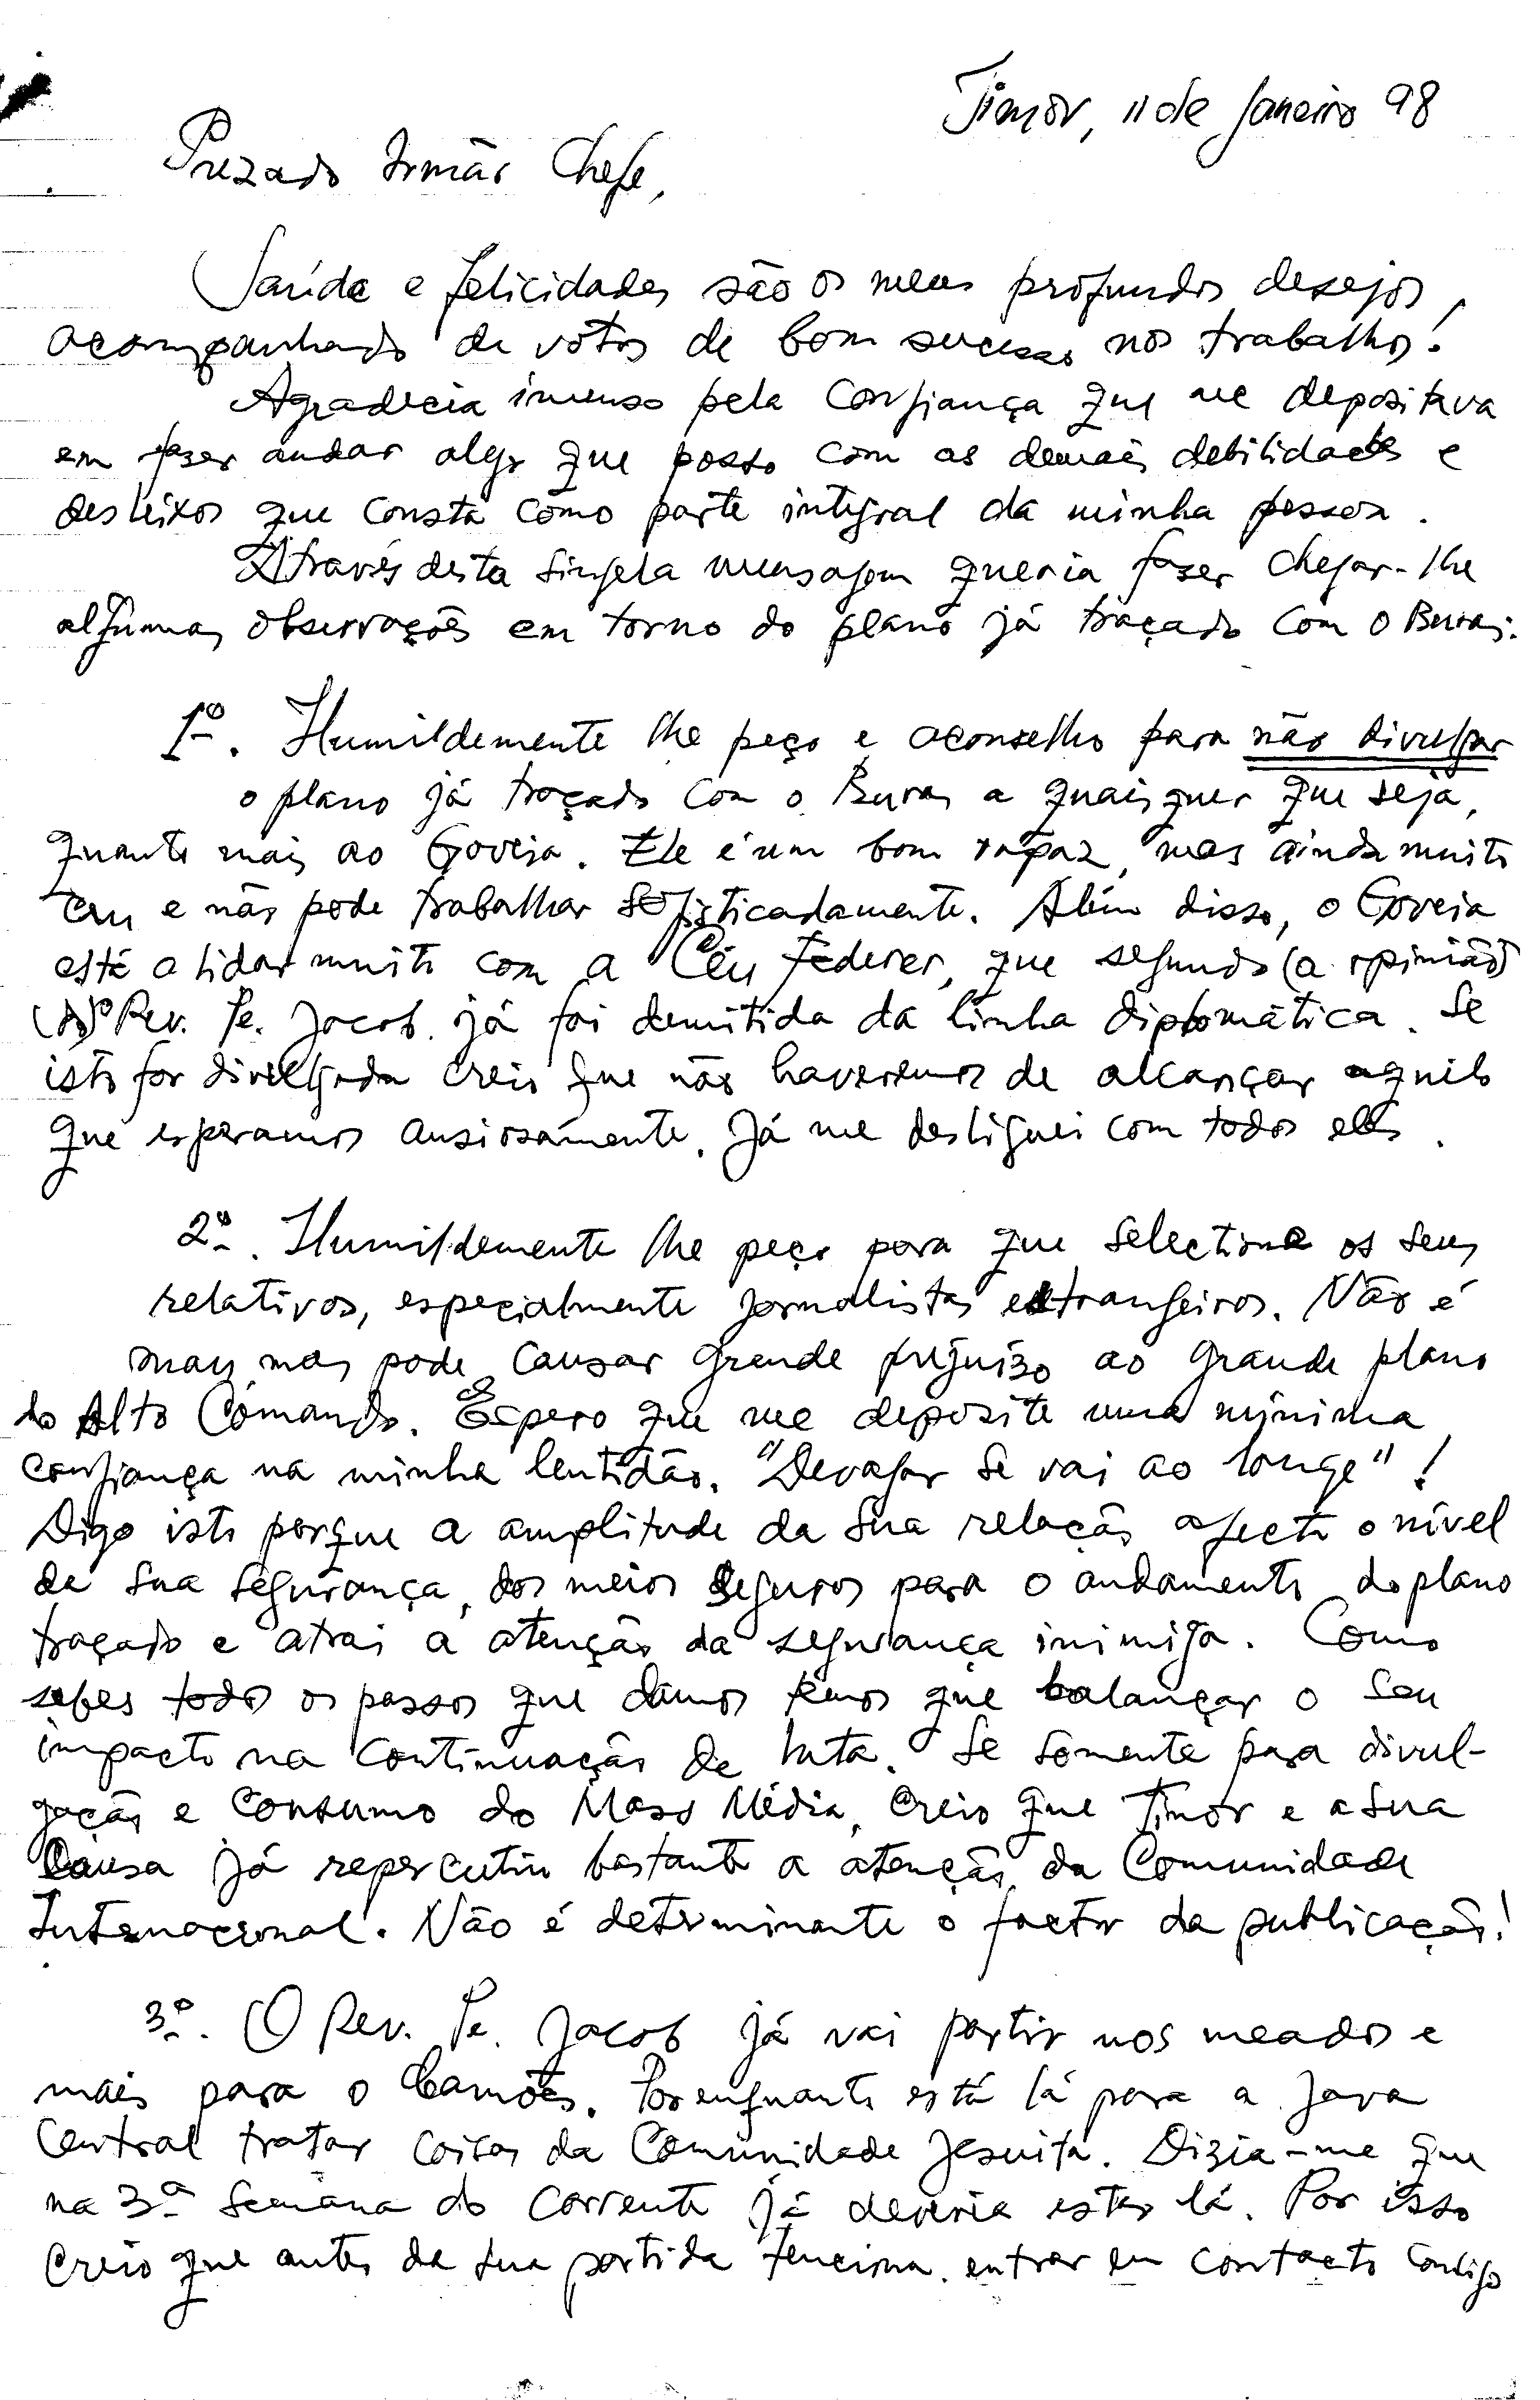 Timor, 11 de Janeiro 98
Prezado Irmão Chefe,
Saúde e felicidades são os meus profundos desejos,
acompanhado de votos de bom sucesso nos trabalhos!
Agradecia imenso pela confiança que me depositava
em fazer andar algo que posso com as demais debilidades e
desleixos que consta como parte integral da minha pessoa.
Através desta singela mensagem queria fazer chegar-lhe
algumas observações em torno do plano já traçado com o Buras.
1º. Humildemente lhe peço e aconselho para não divulgar
o plano já traçado com o Buras a quaisquer que seja,
quanto mais ao Goveia. Ele é um bom rapaz, mas ainda muito
cru e não pode trabalhar sofisticadamente. Além disso, o Goveia
está a lidar muito com a Céu Federer, que segundo (a opinião)
(do) o Rev. Pe. Jacob já foi demitida da linha diplomática. Se
isto for divulgada creio que não haveremos de alcançar aquilo
que esperamos ansiosamente. Já me desliguei com todos eles.
2º. Humildemente lhe peço para que selectione os seus
relativos, especialmente jornalistas extrangeiros. Não é
mau, mas pode causar grande prejuízo ao grande plano
do Alto Comando. Espero que me deposite uma mínima
confiança na minha lentidão. "Devagar se vai ao longe"!
Digo isto porque a amplitude da sua relação afecta o nível
de sua segurança, dos meios seguros para o andamento do plano
traçado e atrai a atenção da segurança inimiga. Como
sabes todos os passos que damos temos que balançar o seu
impacto na continuação de luta. Se somente para divul-
gação e consumo do Mass Média, creio que Timor e a sua
Causa já repercutiu bastante a atenção da Comunidade
Internacional. Não é determinante o factor da publicação!
3º. O Rev. Pe. Jacob já vai partir nos meados e
mais para o Camões. Por enquanto está lá para a Java
Central tratar coisas da Comunidade Jesuita. Dizia-me que
na 3ª semana do corrente já deveria estar lá. Por isso
creio que antes da sua partida tenciona entrar em contacto contigo